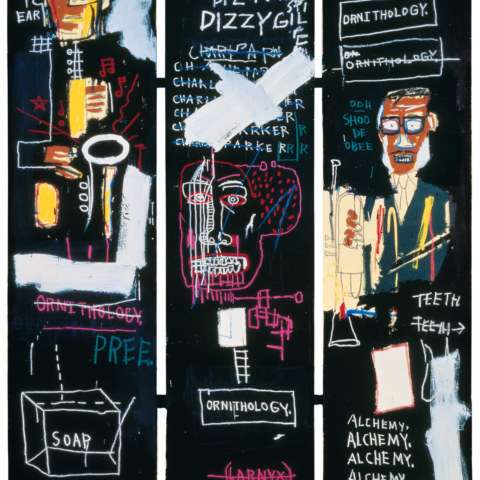 EAR
ORNITHOLOGY.
PREE.
SOAP
DIZZYGIL
CH
CHARL
CHARL ER
CHARL RKER
CHARL PARKER
ORNITHOLOGY.
(LARNYX)
ORNITHOLOGY.
ORNITHOLOGY.
DOH
SHOO
DE
OBEE
TEETH
TEETH→
ALCHEMY.
ALCHEMY.
ALCHEMY.
ALCHEMY